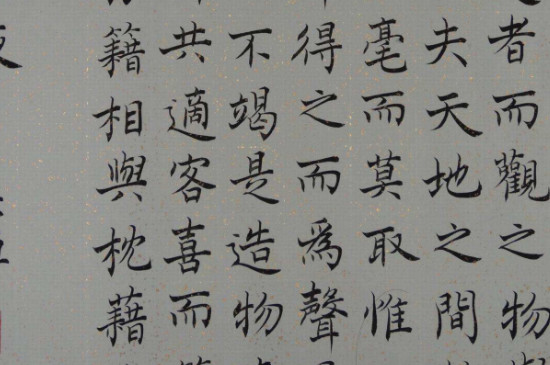 者而觀之物
夫天地之間
毫而莫取惟
得之而爲聲
不竭是造物
共適客喜而
籍相與枕藉